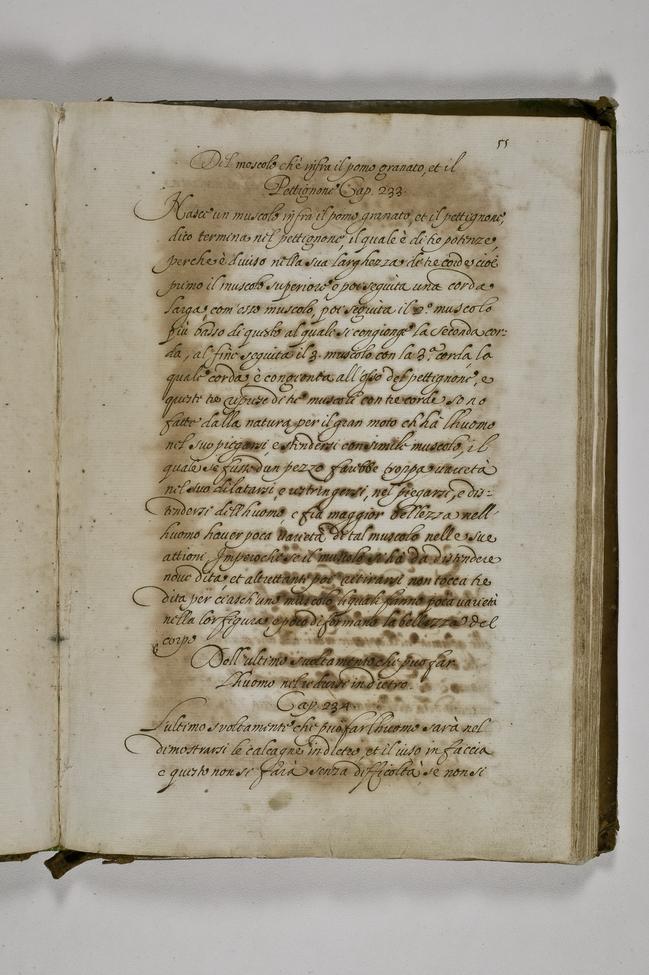 55
Del moscolo ch'è infra il pomo granato, et il
Pettignone Cap. 233.
Nasce un muscolo infra il pomo granato, et il pettignone,
dico termina nel pettignone, il quale è di tre potenze,
perche è diuiso nella sua larghezza da tre corde cioè
primo il muscolo superiore e poi seguita una corda
larga, com'esso muscolo, poi seguita il 2.º muscolo
più basso di questo al quale si congionge la seconda cor-
da, al fine seguita il 3. muscolo con la 3.ª corda, la
quale corda è congionta all'osso del pettignone, e
queste tre riprese de tre muscoli con tre corde sono
fatte dalla natura per il gran moto ch hà l'huomo
nel suo piegarsi, e stendersi con simile muscolo, il
quale se fusse d'un pezzo farebbe troppa varietà
nel suo dilatarsi, e restringersi, nel piegarsi, e dis-
tendersi dell'huomo, e fia maggior bellezza nell
huomo hauer poca varietà di tal muscolo nelle sue
attioni, Imperoche se il muscolo si hà da distendere
noue dita, et altuttanti poi ritirarsi non tocca tre
dita per ciaschuno muscolo li quali fanno poca varietà
nella lor figura, e poco diformano la bellezza del
corpo
Dell'ultimo suoltamento che puo far
l'huomo nel uedersi in dietro.
Cap. 234.
L'ultimo suoltamento che può far l'huomo sarà nel
dimostrarsi le calcagne in dietro, et il uiso in faccia
e questo non si farà senza difficoltà, se non si